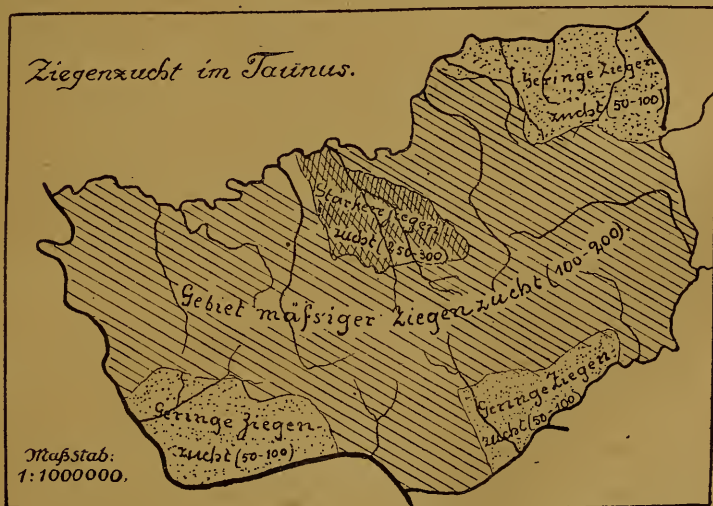 Ziegenzucht im Taunus.
Geringe Ziegen
zucht (50-100)
Starke Ziegen
zucht (250-300)
Gebiet mäfsiger Ziegenzucht (100-200).
Geringe Ziegen
zucht (50-100)
Geringe Ziegen-
zucht (50-100)
Maßstab:
1:1000000.